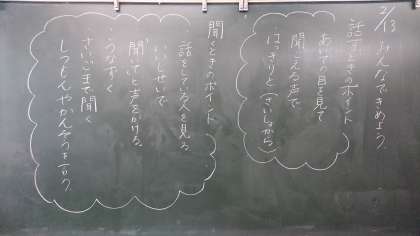 2/13 みんなできめよう
話すときのポイント
・あいての目を見て
・聞こえる声で
・はっきりと(さいしょから)
聞くときのポイント
・話をしている人を見る
・いいしせいで
・聞いてと声をかける。
・うなずく
・さいごまで聞く
・しつもんやかんそうを言う。